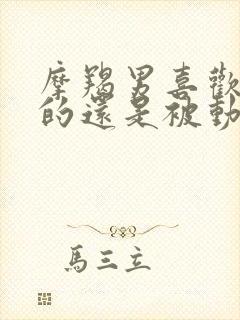 摩羯男喜歡
的還是被動
馬三立